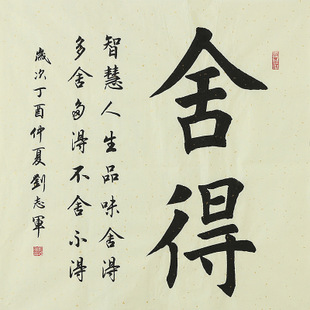 舍得
智慧人生品味舍得
多舍多得不舍不得
歲次丁酉仲夏劉志軍